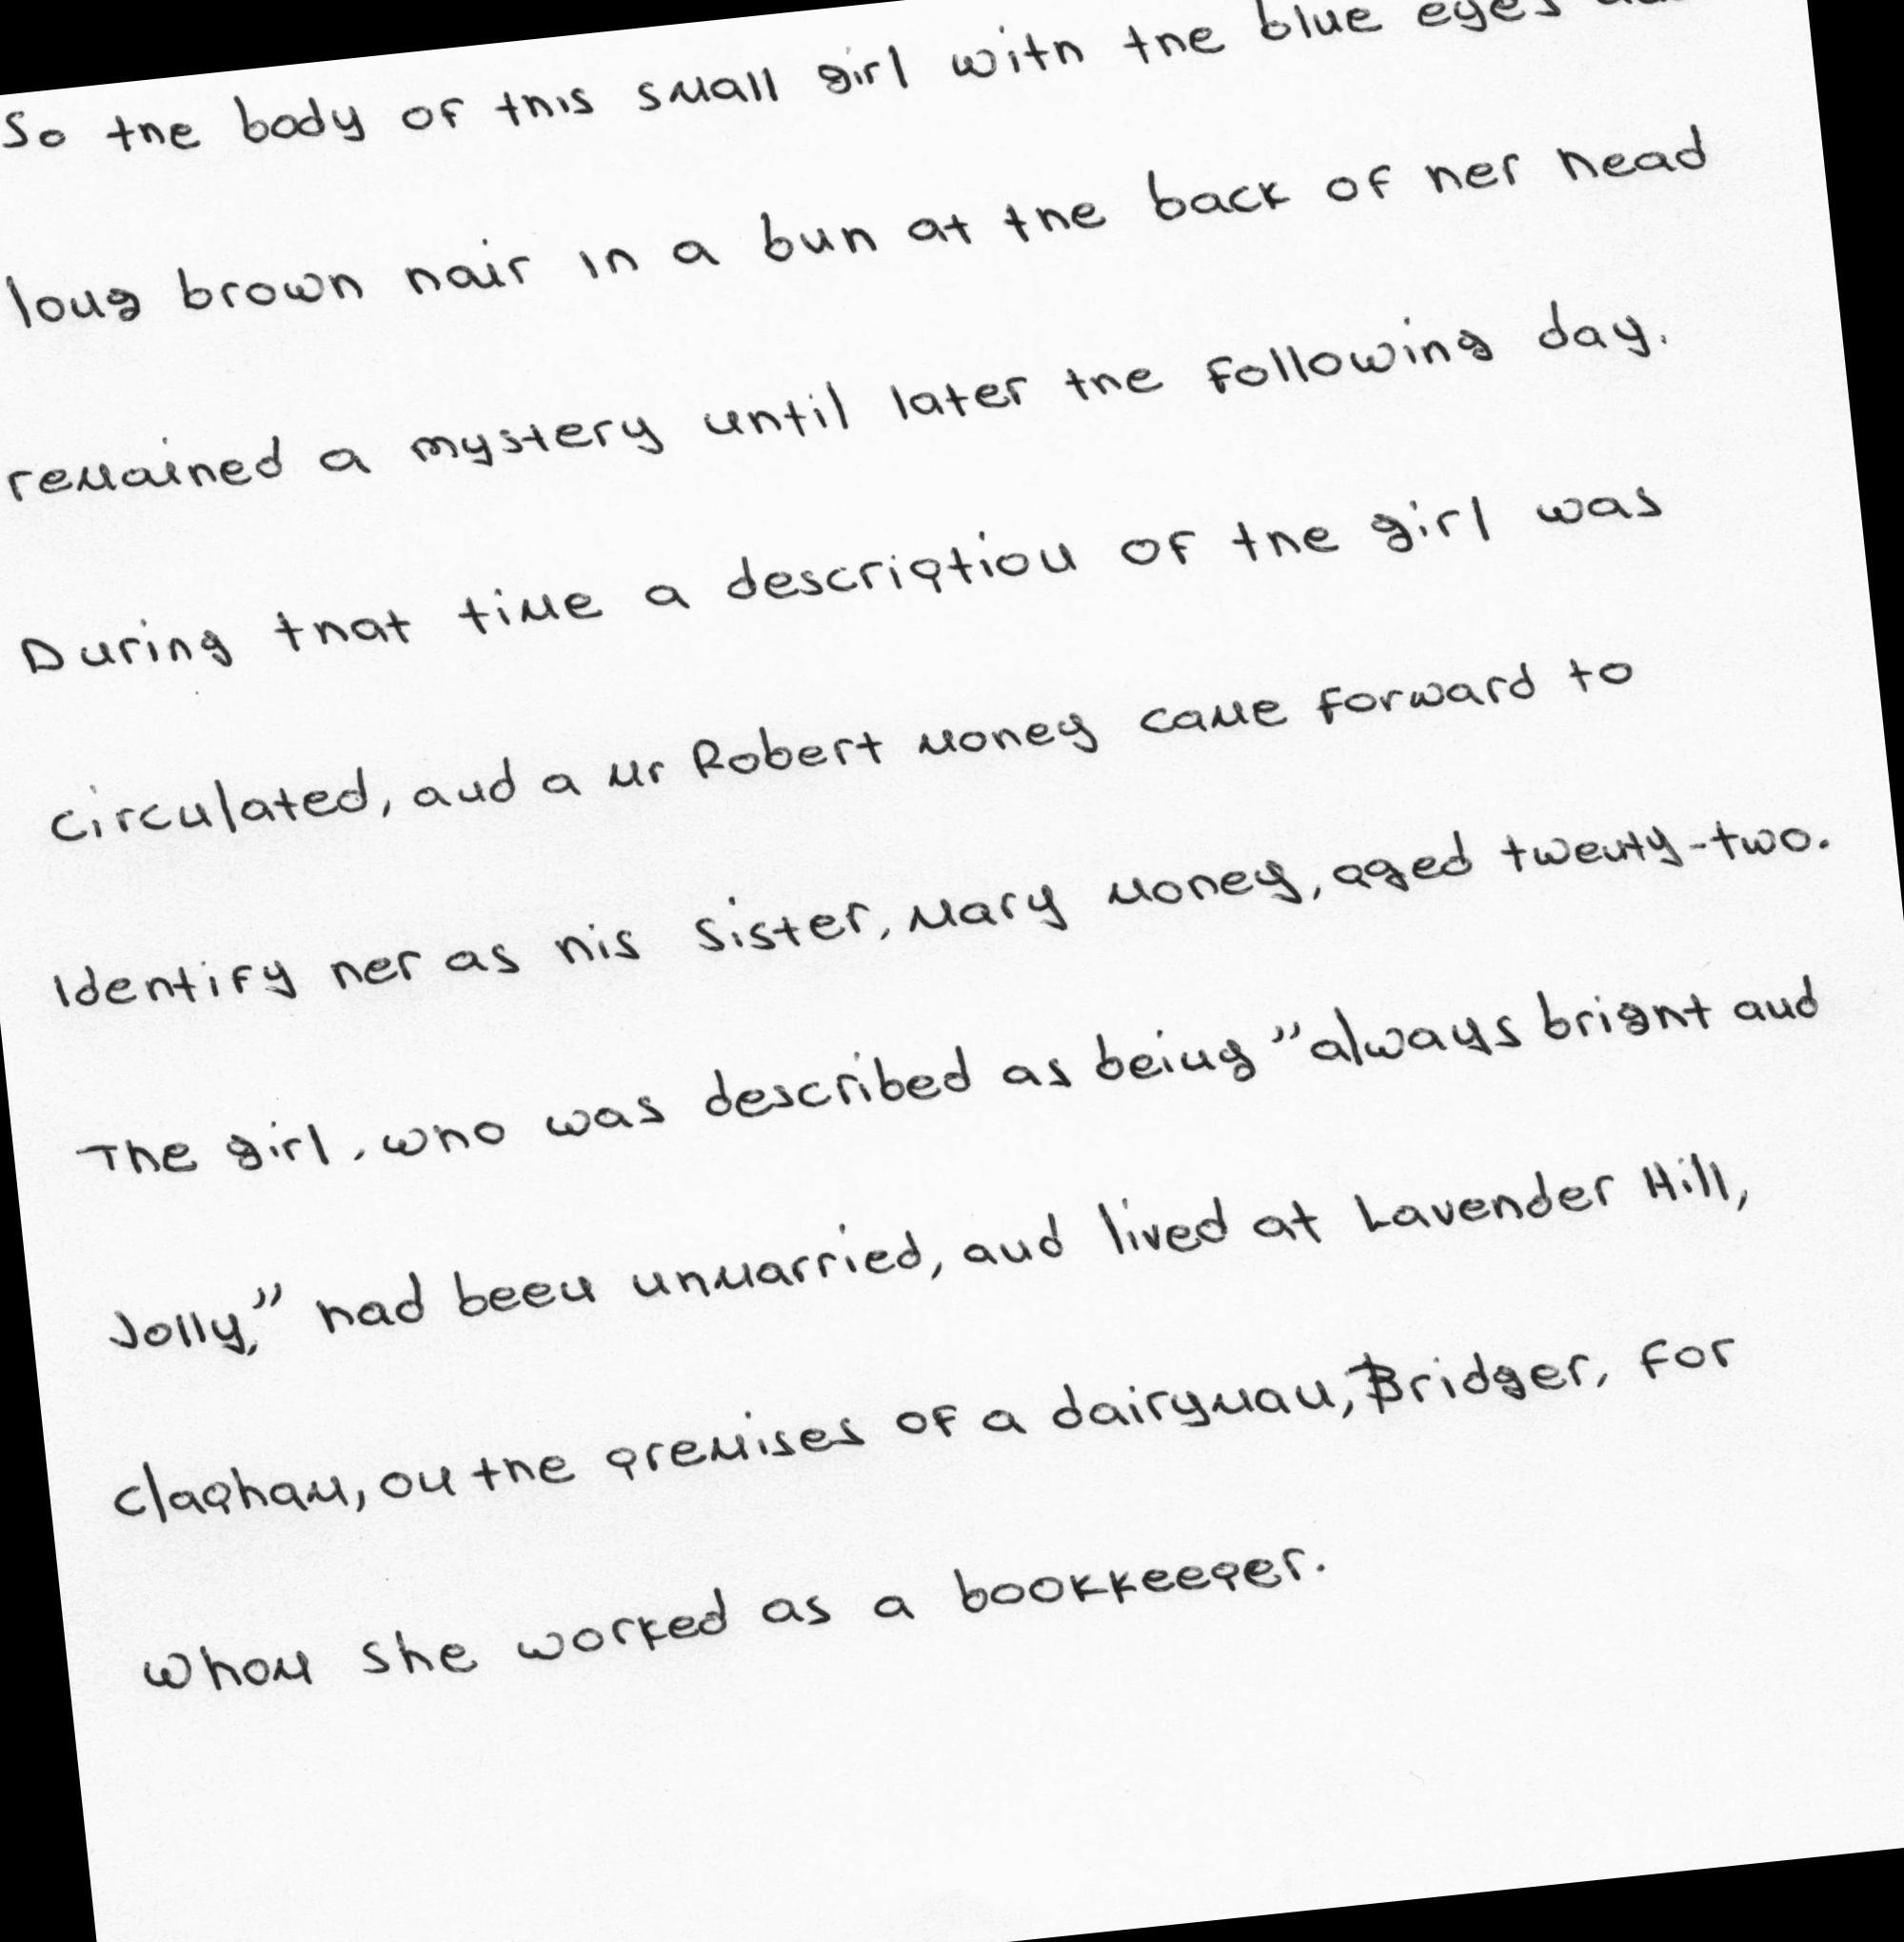 So the body of this small girl with the blue eyes and
long brown hair in a bun at the back of her head
remained a mystery until later the following day.
During that time a description of the girl was
circulated, and a Mr Robert Money came forward to
identify her as his sister, Mary Money, aged twenty-two.
The girl, who was described as being "always bright and
Jolly," had been unmarried, and lived at Lavender Hill,
Clapham, on the premises of a dairyman, Bridger, for
whom she worked as a bookkeeper.